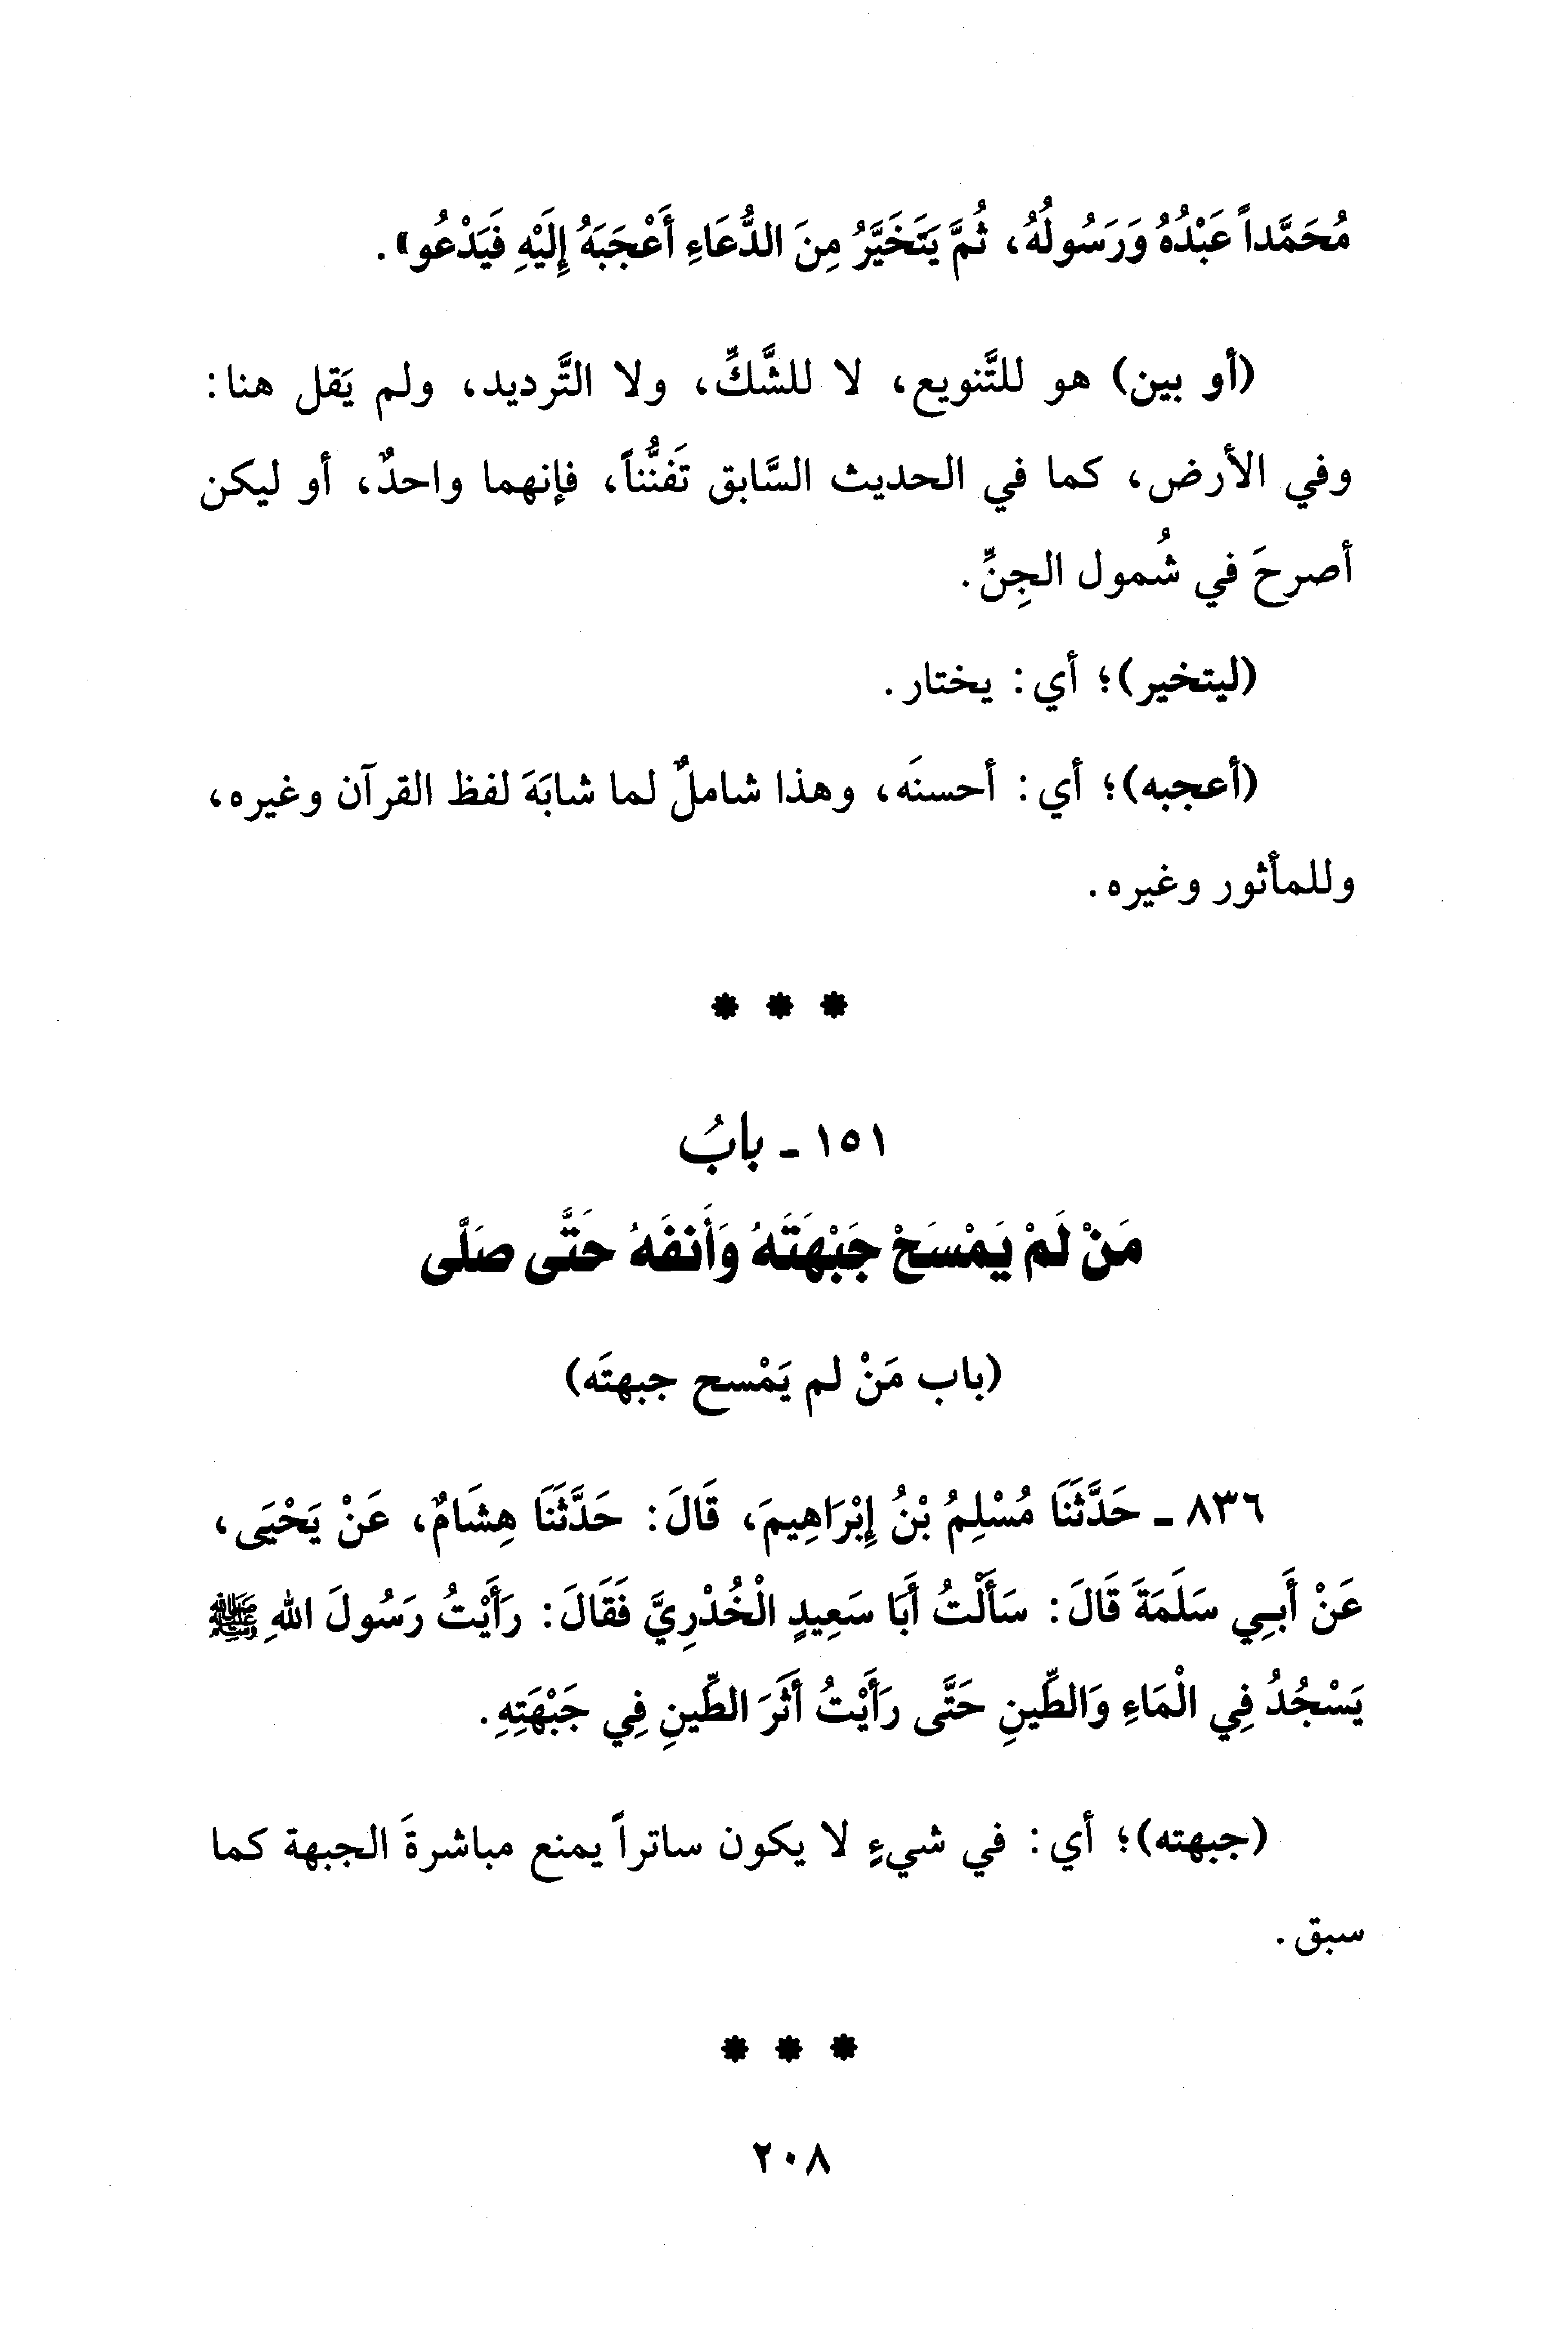 مُحَمَّداً عَبْدُهُ وَرَسُولُهُ، ثُمَّ يَتَخَيَّرُ مِنَ الدُّعَاءِ أَعْجَبَهُ إِلَيْهِ فَيَدْعُو».
(أو بين) هو للتَّنويع، لا للشَّكِّ، ولا التَّرديد، ولم يَقل هنا:
وفي الأرض، كما في الحديث السَّابق تَفنُّناً، فإنهما واحدٌ، أو ليكن
أصرحَ في شُمول الجِنِّ.
(ليتخير)؛ أي: يختار.
(أعجبه)؛ أي: أحسنَه، وهذا شاملٌ لما شابَهَ لفظ القرآن وغيره،
وللمأثور وغيره.
* * *
١٥١ - بابُ
مَنْ لَمْ يَمْسَحْ جَبْهَتَهُ وَأَنفَهُ حَتَّى صَلَّى
(باب مَنْ لم يَمْسح جبهتَه)
٨٣٦ - حَدَّثَنَا مُسْلِمُ بْنُ إِبْرَاهِيمَ، قَالَ: حَدَّثَنَا هِشَامٌ، عَنْ يَحْيَى،
عَنْ أَبِي سَلَمَةَ قَالَ: سَأَلْتُ أَبَا سَعِيدٍ الْخُدْرِيَّ فَقَالَ: رَأَيْتُ رَسُولَ اللهِ ﷺ
يَسْجُدُ فِي الْمَاءِ وَالطِّينِ حَتَّى رَأَيْتُ أَثَرَ الطِّينِ فِي جَبْهَتِهِ.
(جبهته)؛ أي: في شيءٍ لا يكون ساتراً يمنع مباشرةَ الجبهة كما
سبق.
* * *
٢٠٨